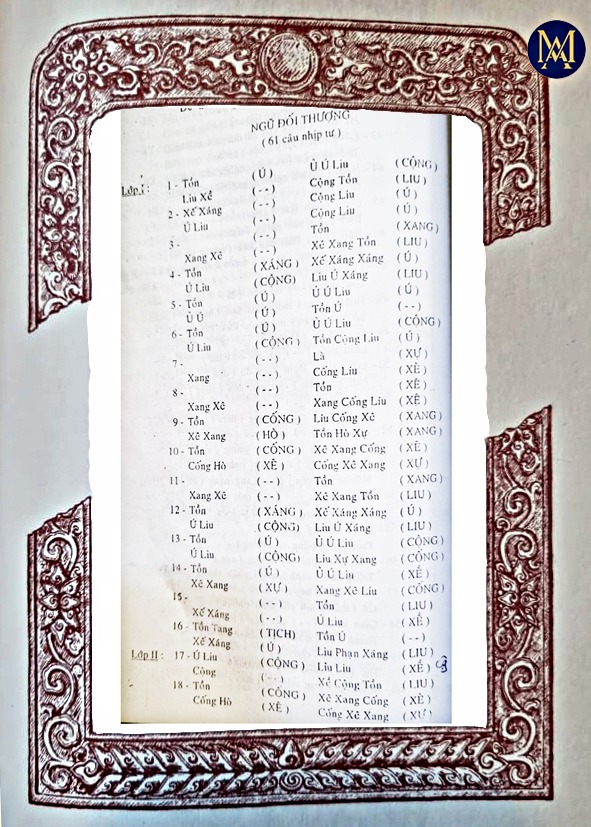 NGŨ ĐỐI THƯƠNG
( 61 câu nhịp tư )
Lớp I : 1 - Tồn ( Ú ) Ù Ú Liu ( CỘNG )
Liu Xề ( - - ) Cộng Tồn ( LIU )
2 - Xế Xáng ( - - ) Cộng Liu ( Ú )
Ú Liu ( - - ) Cộng Liu ( Ú )
3 - ( - - ) Tồn ( XANG )
Xang Xê ( - - ) Xê Xang Tồn ( LIU )
4 - Tồn ( XÁNG ) Xế Xáng Xáng ( Ú )
Ú Liu ( CỘNG ) Liu Ú Xáng ( LIU )
5 - Tồn ( Ú ) Ù Ú Liu ( Ú )
Ù Ú ( Ú ) Tồn Ú ( - - )
6 - Tồn ( Ú ) Ù Ú Liu ( CỘNG )
Ú Liu ( CỘNG ) Tồn Cộng Liu ( Ú )
7 - ( - - ) Là ( XỰ )
Xang ( - - ) Cống Liu ( XÊ )
8 - ( - - ) Tồn ( XÊ )
Xang Xê ( - - ) Xang Cống Líu ( XÊ )
9 - Tồn ( CỐNG ) Líu Cống Xê ( XANG )
Xê Xang ( HÒ ) Tồn Hò Xự ( XANG )
10 - Tồn ( CỐNG ) Xê Xang Cống ( XÊ )
Cống Hò ( XÊ ) Cống Xê Xang ( XỰ )
11 - ( - - ) Tồn ( XANG )
Xang Xê ( - - ) Xê Xang Tồn ( LIU )
12 - Tồn ( XÁNG ) Xế Xáng Xáng ( Ú )
Ú Liu ( CỘNG ) Liu Ú Xáng ( LIU )
13 - Tồn ( Ú ) Ù Ú Liu ( CỘNG )
Ú Liu ( CỘNG ) Liu Xự Xang ( CỐNG )
14 - Tồn ( Ú ) Ù Ú Liu ( XỀ )
Xê Xang ( XỰ ) Xang Xê Líu ( CỐNG )
15 - ( - - ) Tồn ( LIU )
Xế Xáng ( - - ) Ú Liu ( XỀ )
16 - Tồn Tang ( TỊCH ) Tồn Ú ( - - )
Xế Xáng ( Ú ) Liu Phạn Xáng ( LIU )
Lớp II : 17 - Ú Liu ( CỘNG ) Liu Liu ( XỀ )
Cộng ( - - ) Xề Cộng Tồn ( LIU )
18 - Tồn ( CỐNG ) Xê Xang Cống ( XÊ )
Cống Hò ( XÊ ) Cống Xê Xang ( XỰ )